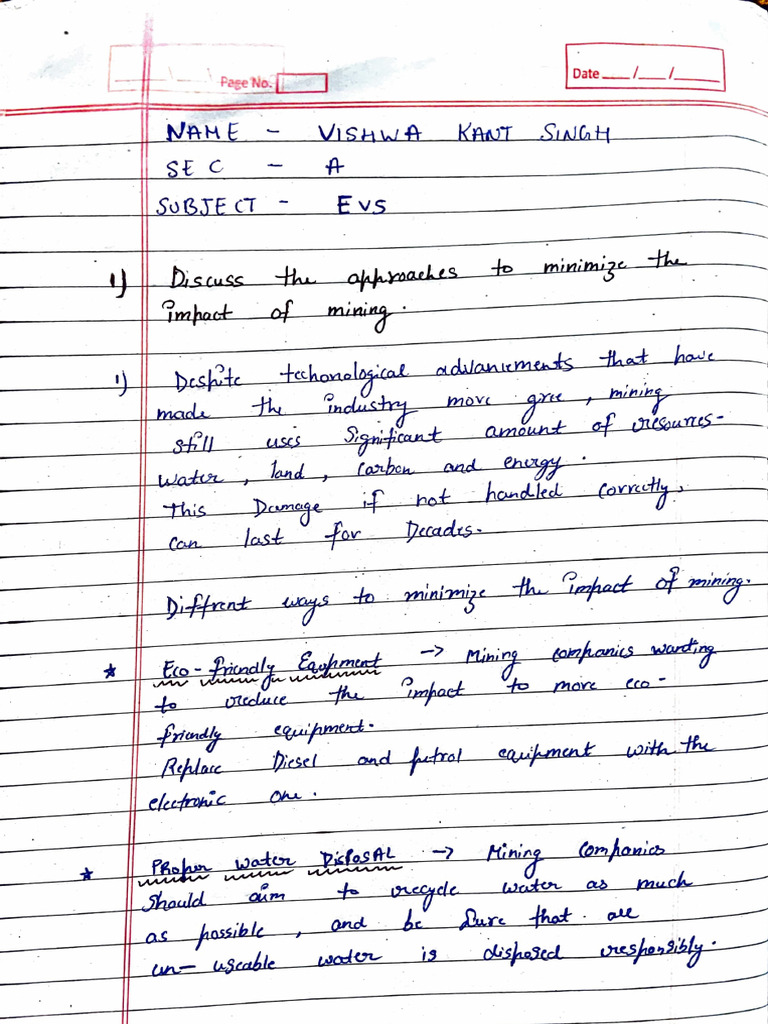 Page No.
Date ___/___/___
NAME - VISHWA KANT SINGH
SEC - A
SUBJECT - EVS
1) Discuss the approaches to minimize the
impact of mining.
1) Despite techonological advancements that have
made the industry more gree, mining
still uses significant amount of resources-
water, land, carbon and energy.
This Damage if not handled correctly,
can last for Decades.
Diffrent ways to minimize the impact of mining.
* Eco-friendly Equpment → Mining companies wanting
to reduce the impact to more eco-
friendly equipment.
Replace Diesel and petrol equipment with the
electronic one.
* PRoper water DisposAL → Mining companies
should aim to recycle water as much
as possible, and be sure that all
un-useable water is disposed responsibly.